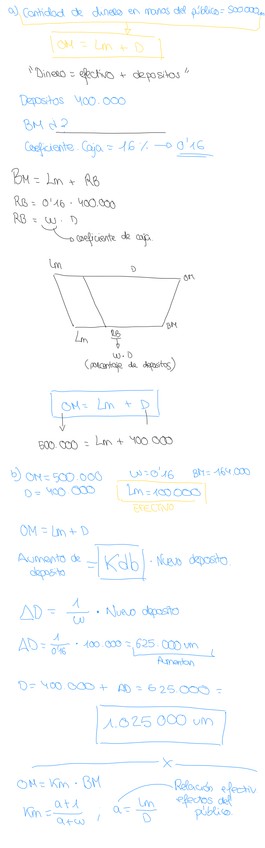 a) Cantidad de dinero en manos del público = 500.000 um
OM = Lm + D
"Dinero = efectivo + depositos"
Depositos 400.000
BM d?
Coeficiente Caja = 16% → 0'16
BM = Lm + RB
RB = 0'16 · 400.000
RB = w · D
→ coeficiente de caja.
Lm D OM
Lm RB BM
w · D
(porcentaje de depositos)
OM = Lm + D
500.000 = Lm + 400 000
b) OM = 500.000 w = 0'16 BM = 164.000
D = 400 000 Lm = 100 000
EFECTIVO
OM = Lm + D
Aumento de deposito = Kdb · Nuevo deposito
ΔD = 1/w · Nuevo deposito
ΔD = 1/0'16 · 100.000 = 625.000 um
Aumentan
D = 400 000 + ΔD = 625.000 =
1.025 000 um
x
OM = Km · BM
Km = a+1/a+w ; a = Lm/D
Relación efectiv
efectos del
público.